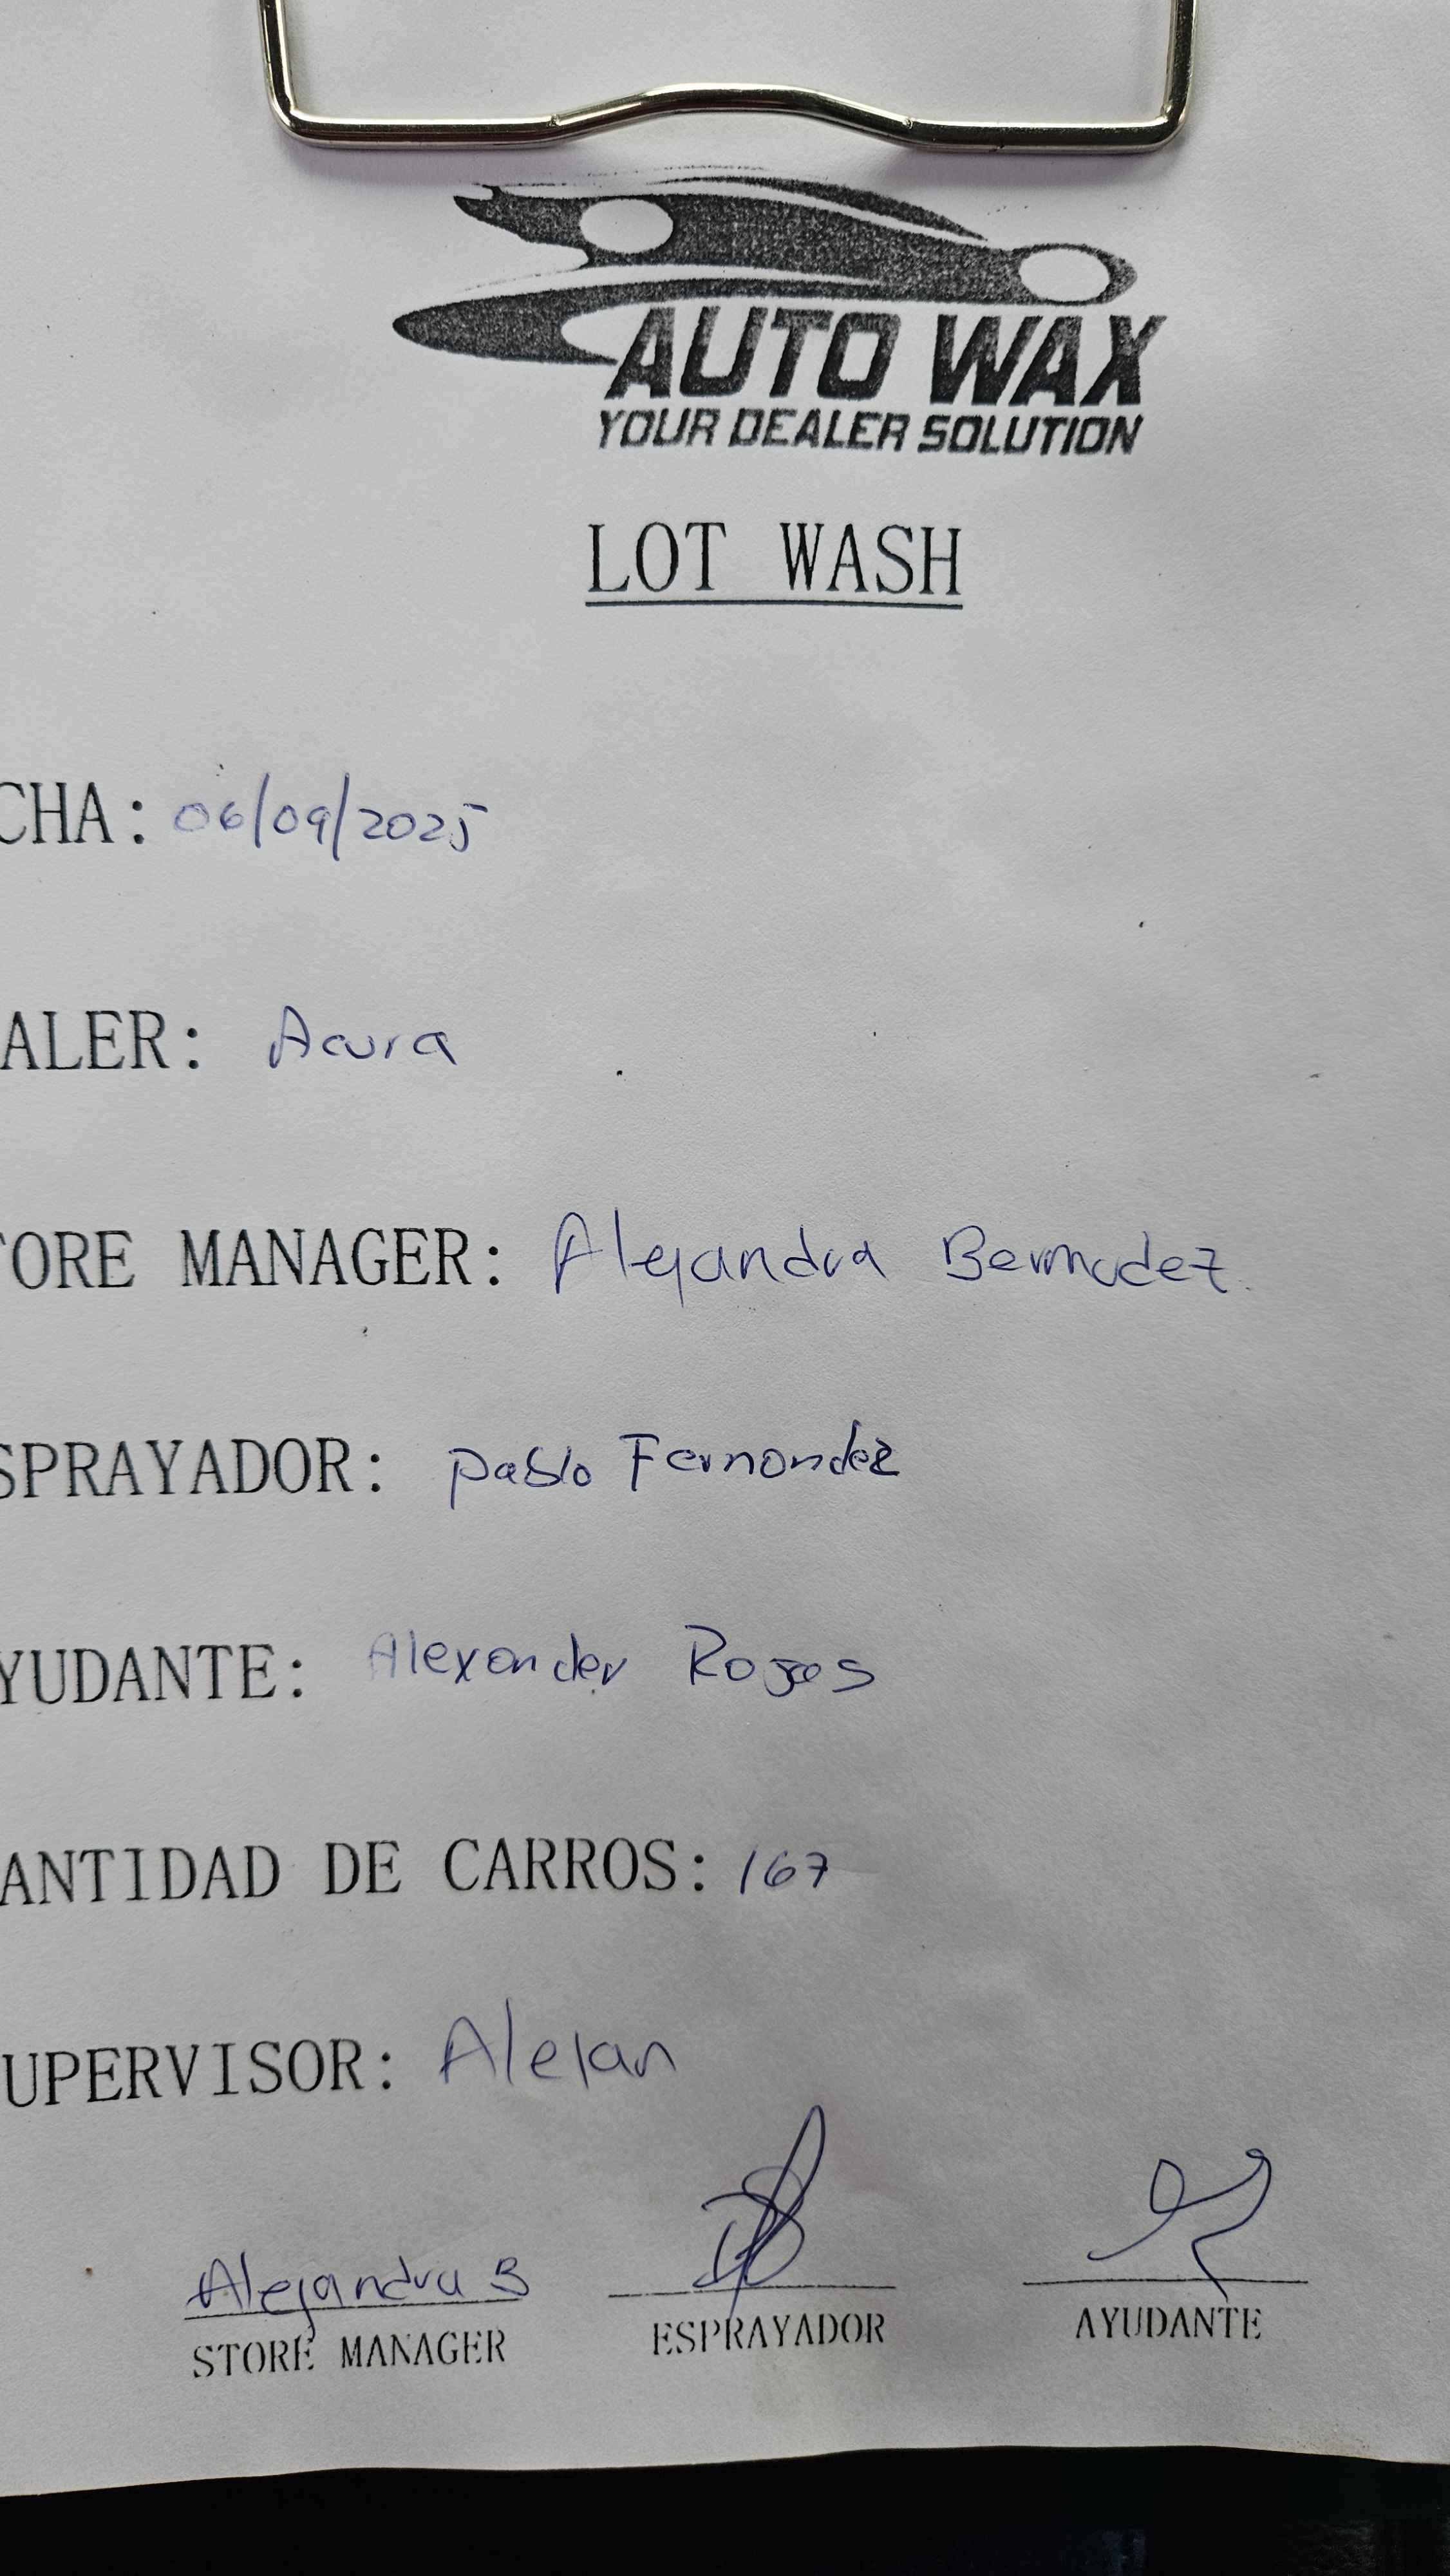 AUTO WAX
YOUR DEALER SOLUTION
LOT WASH
CHA: 06/09/2025
ALER: Acura
ORE MANAGER: Alejandra Bermudez
SPRAYADOR: Pablo Fernandez
YUDANTE: Alexander Rojas
ANTIDAD DE CARROS: 167
UPERVISOR: Alejan
Alejandra B
STORE MANAGER ESPRAYADOR AYUDANTE